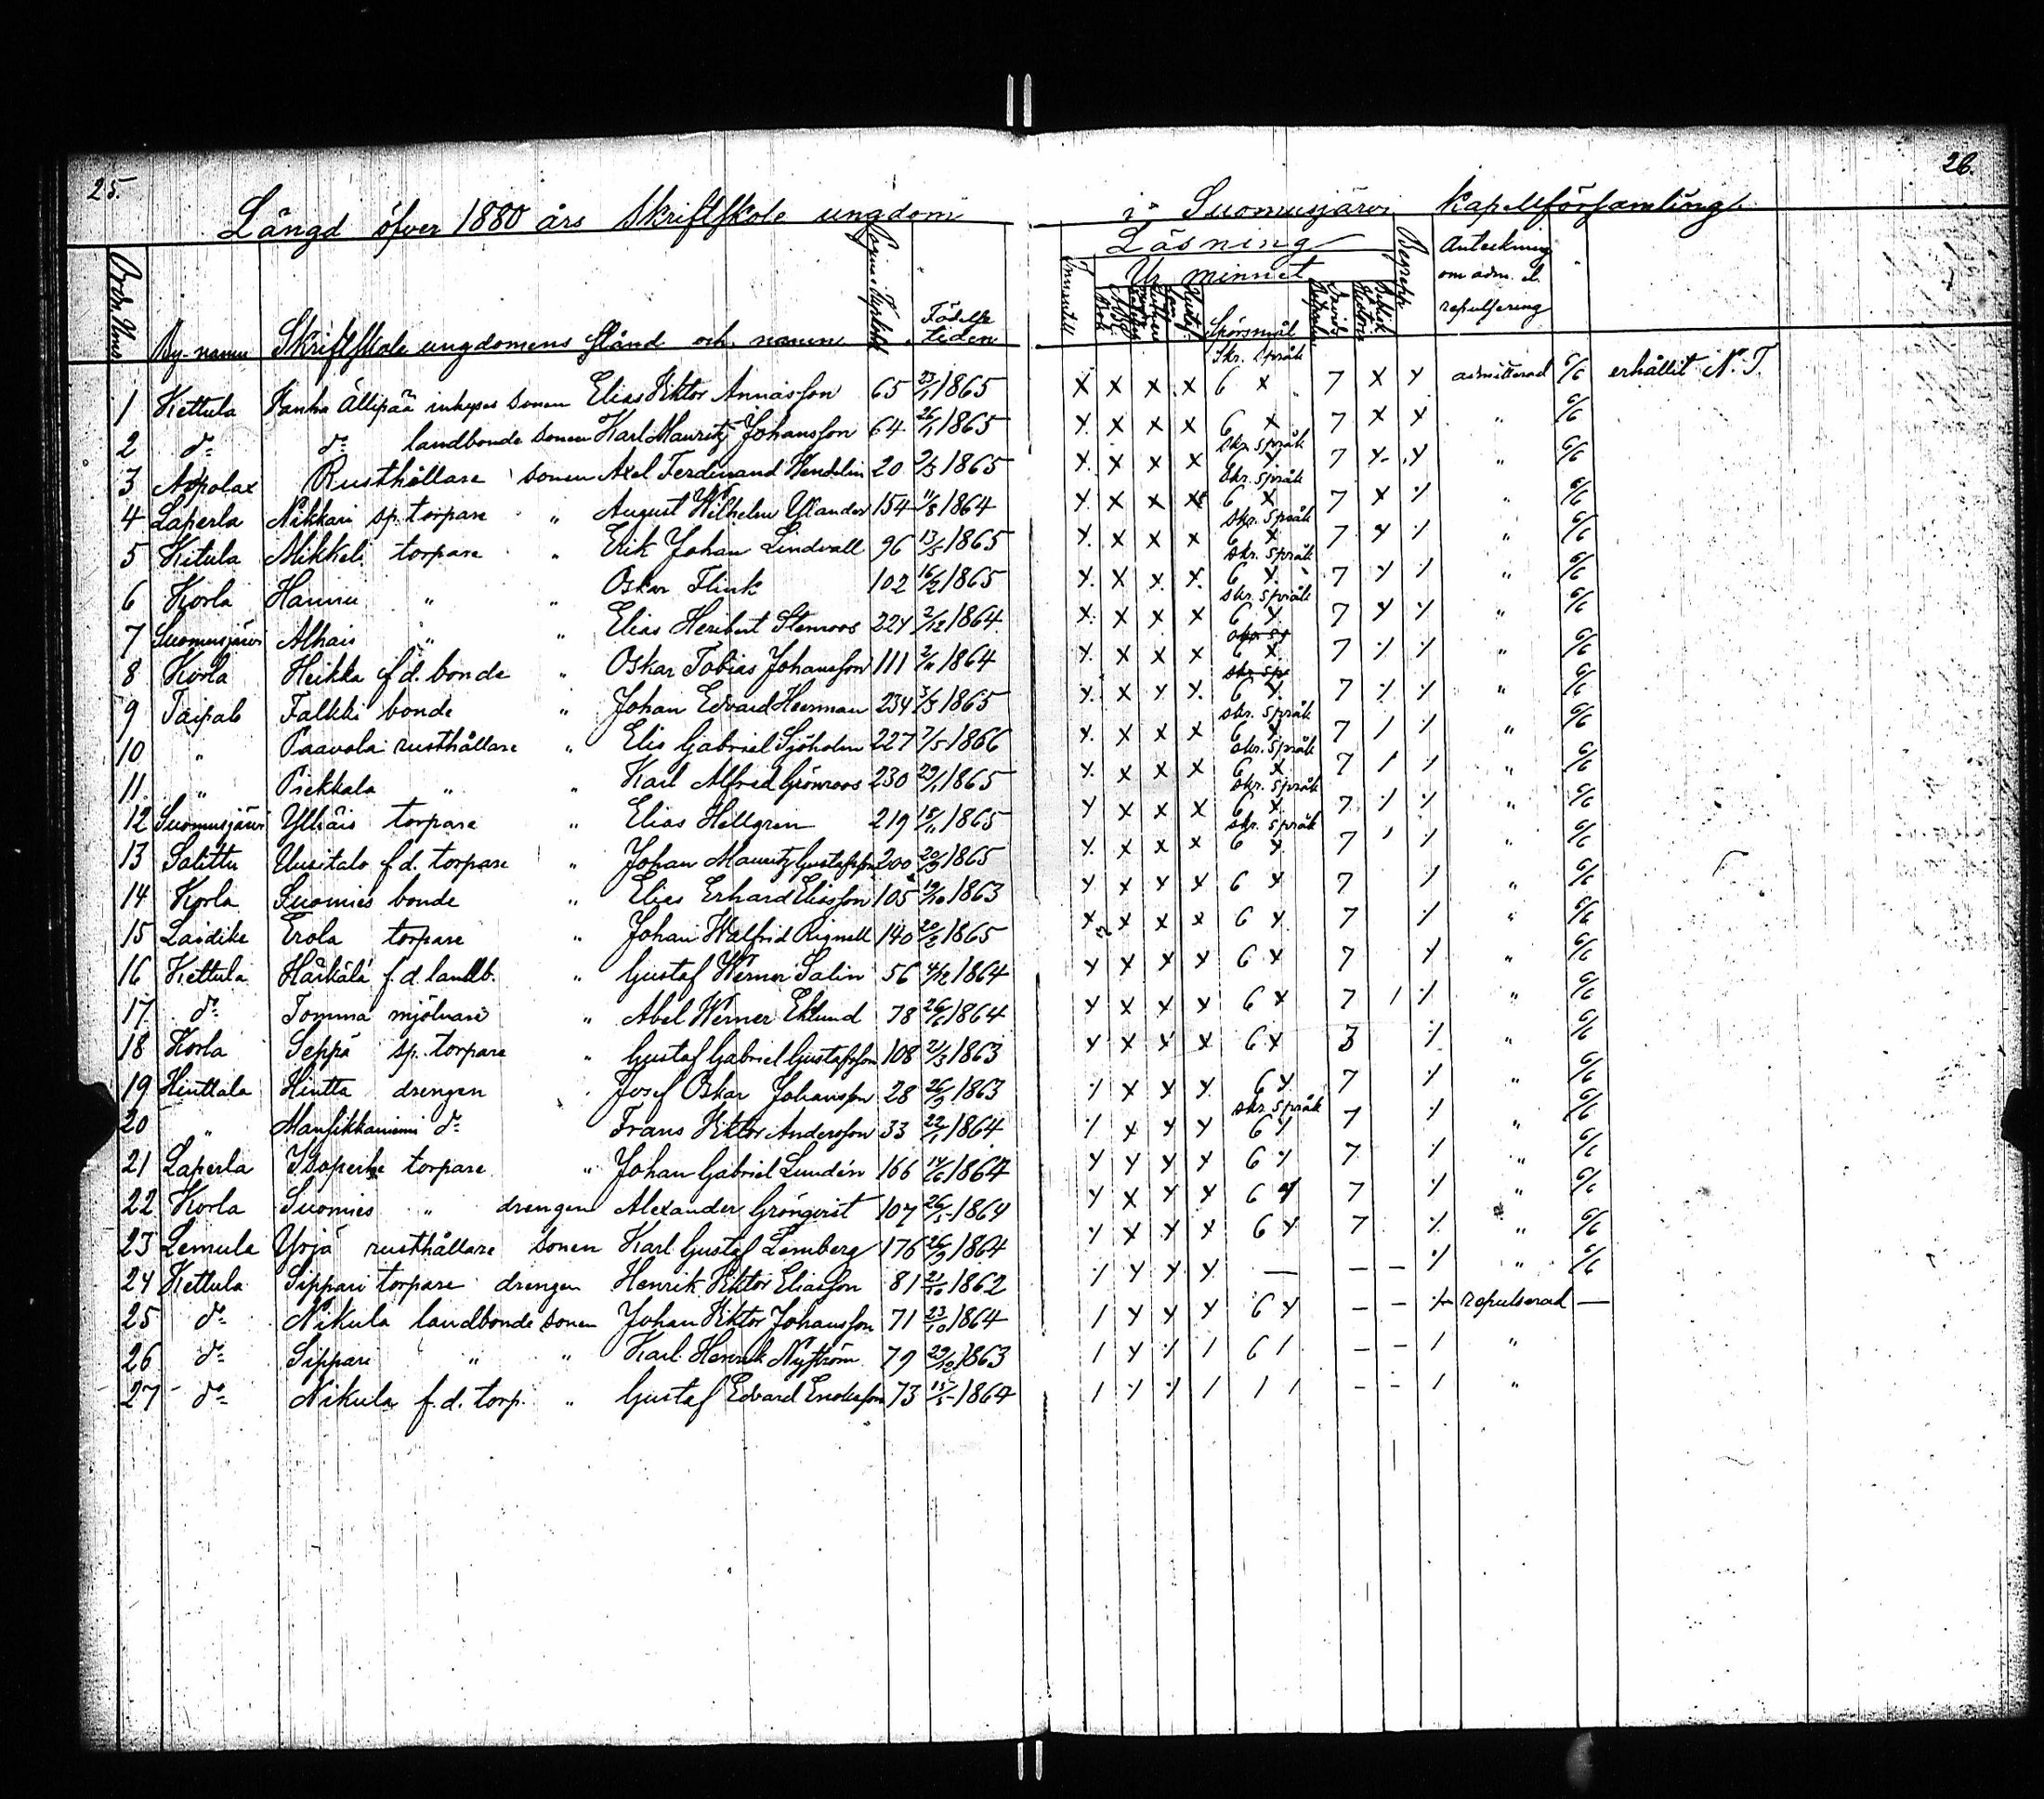 25. 26.
Längd öfver 1880 års Skriftskole ungdom i Suomusjärvi Kapellförsamling.
Läsning Begrepp Anteckning
Ur minnet om adm. el.
Innantill repulsering
By-namn Skriftskole ungdomens stånd och namn Födelse tiden Spörsmål
1 Kettula Vanha Ällipää inhyses sonen Elias Viktor Annasson 65 23/1 1865 x x x x Skr. språk 6 x 7 x x admitterad 6/6 erhållit N. T.
2 do do landbonde sonen Karl Mauritz Johansson 64 26/1 1865 x x x x 6 x 7 x x " 6/6
3 Arpolax Rusthållare sonen Axel Ferdinand Wendelin 20 2/3 1865 x x x x skr. språk 7 x x " 6/6
4 Laperla Nikkari sp. torpare " August Wilhelm 154 11/8 1864 x x x x skr. språk 6 x 7 x / " 6/6
5 Kitula Mikkeli torpare " Erik Johan Lindvall 96 13/5 1865 x x x x skr. språk 6 x 7 x / " 6/6
6 Korla Hannu " " Oskar Flink 102 16/2 1865 x x x x skr. språk 6 x 7 x / " 6/6
7 Suomusjärvi Alhais " " Elias Heribert Stenroos 224 2/12 1864 x x x x skr. språk 6 x 7 x / " 6/6
8 Korla Heikka f.d. bonde " Oskar Tobias Johansson 111 2/11 1864 x x x x 6 x 7 / / " 6/6
9 Taipale Falkki bonde " Johan Edvard Heerman 234 3/3 1865 x x x x 6 x 7 / / " 6/6
10 " Paavola rusthållare " Elis Gabriel Sjöholm 227 7/5 1866 x x x x skr. språk 6 x 7 / / " 6/6
11 " Piekkala " " Karl Alfred Grönroos 230 29/1 1865 x x x x skr. språk 6 x 7 / / " 6/6
12 Suomusjärvi Ylhäis torpare " Elias Hellgren 219 15/11 1865 x x x x skr. språk 6 x 7 / / " 6/6
13 Salittu Uusitalo f.d. torpare " Johan Mauritz Gustafsson 200 20/9 1865 x x x x skr. språk 6 x 7 / / " 6/6
14 Korla Suomies bonde " Elias Erhard Eliasson 105 19/10 1863 x x x x 6 x 7 / " 6/6
15 Laidike Erola torpare " Johan Walfrid Rignell 140 20/2 1865 x x x x 6 x 7 / " 6/6
16 Kettula Härkälä f.d. landb. " Gustaf Werner Salin 56 4/12 1864 x x x x 6 x 7 / " 6/6
17 do Tomma mjölnare " Abel Werner Eklund 78 26/6 1864 x x x x 6 x 7 / / " 6/6
18 Korla Seppä sp. torpare " Gustaf Gabriel Gustafsson 108 21/3 1863 x x x x 6 x 3 / " 6/6
19 Hinttala Hintta drengen Josef Oskar Johansson 28 26/9 1863 / x x x 6 x 7 / " 6/6
20 " Mansikkaniemi do Frans Viktor Andersson 33 22/1 1864 / x x x skr. språk 6 / 7 / " 6/6
21 Laperla Isoperhe torpare " Johan Gabriel Lundén 166 14/6 1864 x x x x 6 / 7 / " 6/6
22 Korla Suomies " drengen Alexander Grönqvist 107 26/5 1864 x x x x 6 x 7 / " 6/6
23 Lemula Yrjä rusthållare sonen Karl Gustaf Lemberg 176 26/9 1864 / x x x 6 x 7 / " 6/6
24 Kettula Sippari torpare drengen Henrik Viktor Eliasson 81 21/10 1862 / x x x — – – / " 6/6
25 do Nikula landbonde sonen Johan Viktor Johansson 71 23/10 1864 / x x x 6 x – – / repulserad —
26 do Sippari " " Karl Henrik Nyström 79 29/12 1863 / x / / 6 / – – / "
27 do Nikula f.d. torp. " Gustaf Edvard 73 15/5 1864 / / / / / / – – / "